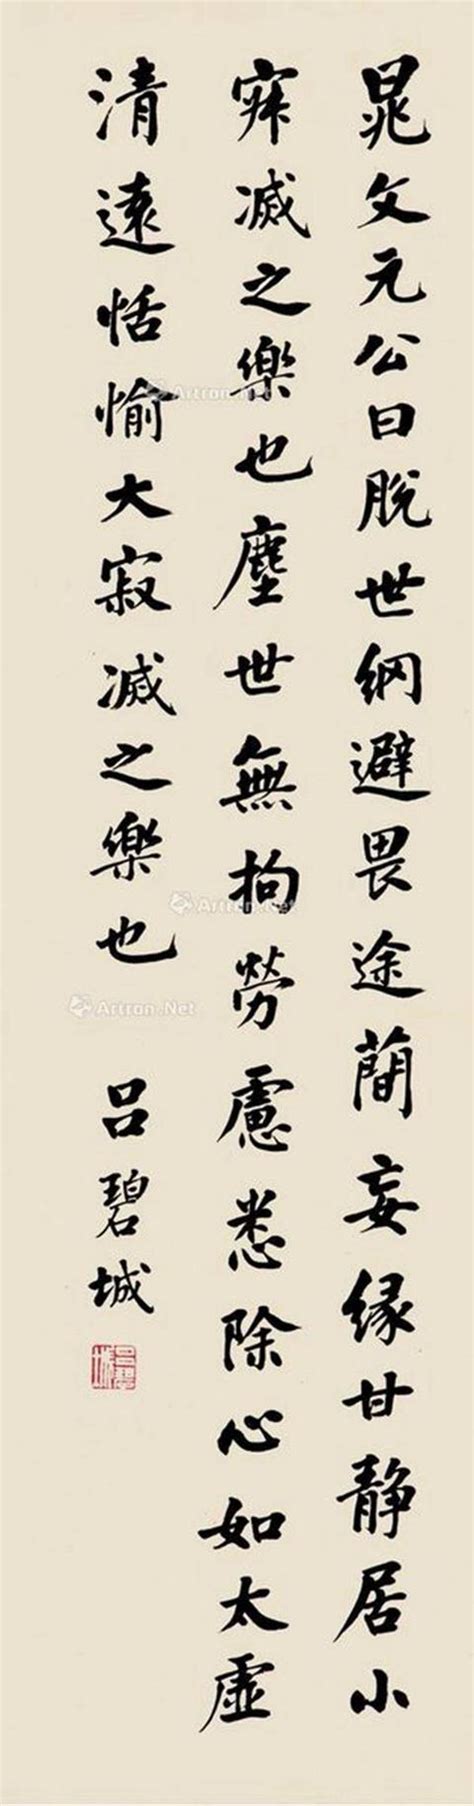 晁文元公曰脫世網避畏途蕳妄緣甘静居小
寂滅之樂也塵世無拘勞慮悉除心如太虛
清遠恬愉大寂滅之樂也
吕碧城
Artron.Net
Artron.Net
Artron.Net